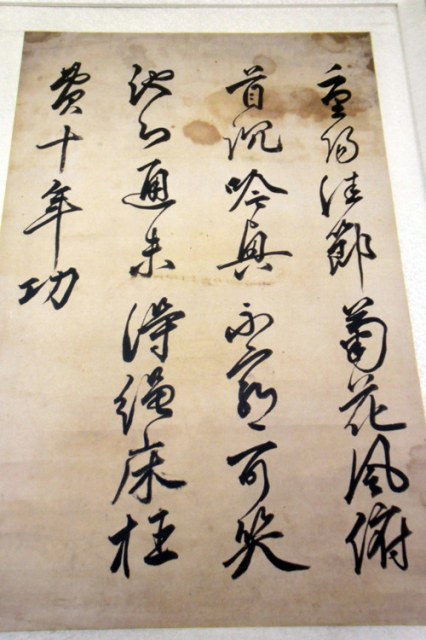 重陽佳節菊花風俯
首沉吟興不窮可笑
他心通未得繩床枉
費十年功